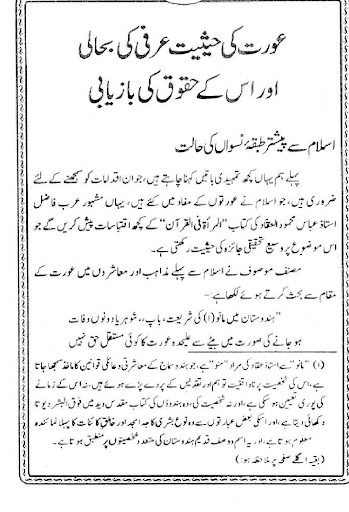 عورت کی حیثیت عرفی کی بحالی
اور اس کے حقوق کی بازیابی
اسلام سے پیشتر طبقۂ نسواں کی حالت
پہلے ہم یہاں کچھ تمہیدی باتیں کہنا چاہتے ہیں، جو ان اقدامات کو سمجھنے کے لئے
ضروری ہیں، جو اسلام نے عورتوں کے مفاد میں کئے ہیں، یہاں مشہور عرب فاضل
استاذ عباس محمود العقاد کی کتاب "المرأة فی القرآن" کے کچھ اقتباسات پیش کریں گے جو
اس موضوع پر وسیع تحقیقی جائزہ کی حیثیت رکھتی ہے۔
مصنف موصوف نے اسلام سے پہلے مذاہب اور معاشروں میں عورت کے
مقام سے بحث کرتے ہوئے لکھا ہے:-
"ہندوستان میں مانو (۱) کی شریعت، باپ،، شوہر یا دونوں وفات
ہو جانے کی صورت میں بیٹے سے علیحدہ عورت کا کوئی مستقل حق نہیں
(۱) "مانو" سے استاذ عقاد کی مراد "منو" ہے، جو ہندو سماج کے معاشرتی و عائلی قوانین کا ماخذ سمجھا جاتا
ہے، اس کی شخصیت پر ناواقفیت تو ہم اور تقدیس کے پردے پڑے ہوئے ہیں، نہ اس کے زمانے
کی پوری تعیین ہو سکی ہے، اور نہ شخصیت کی، وہ ہندوؤں کی کتاب مقدس وید میں فوق البشر دیوتا
دکھائی دیتا ہے، اور اسکی بعض عبارتوں سے وہ نوع بشری کا جد امجد اور خالق کائنات کا پہلا نمائندہ
معلوم ہوتا ہے، اور یہ اسم و وصف قدیم ہندوستان کی متعدد شخصیتوں پر منطبق ہوتا ہے۔
(بقیہ اگلے صفحے پر ملاحظہ ہو:)